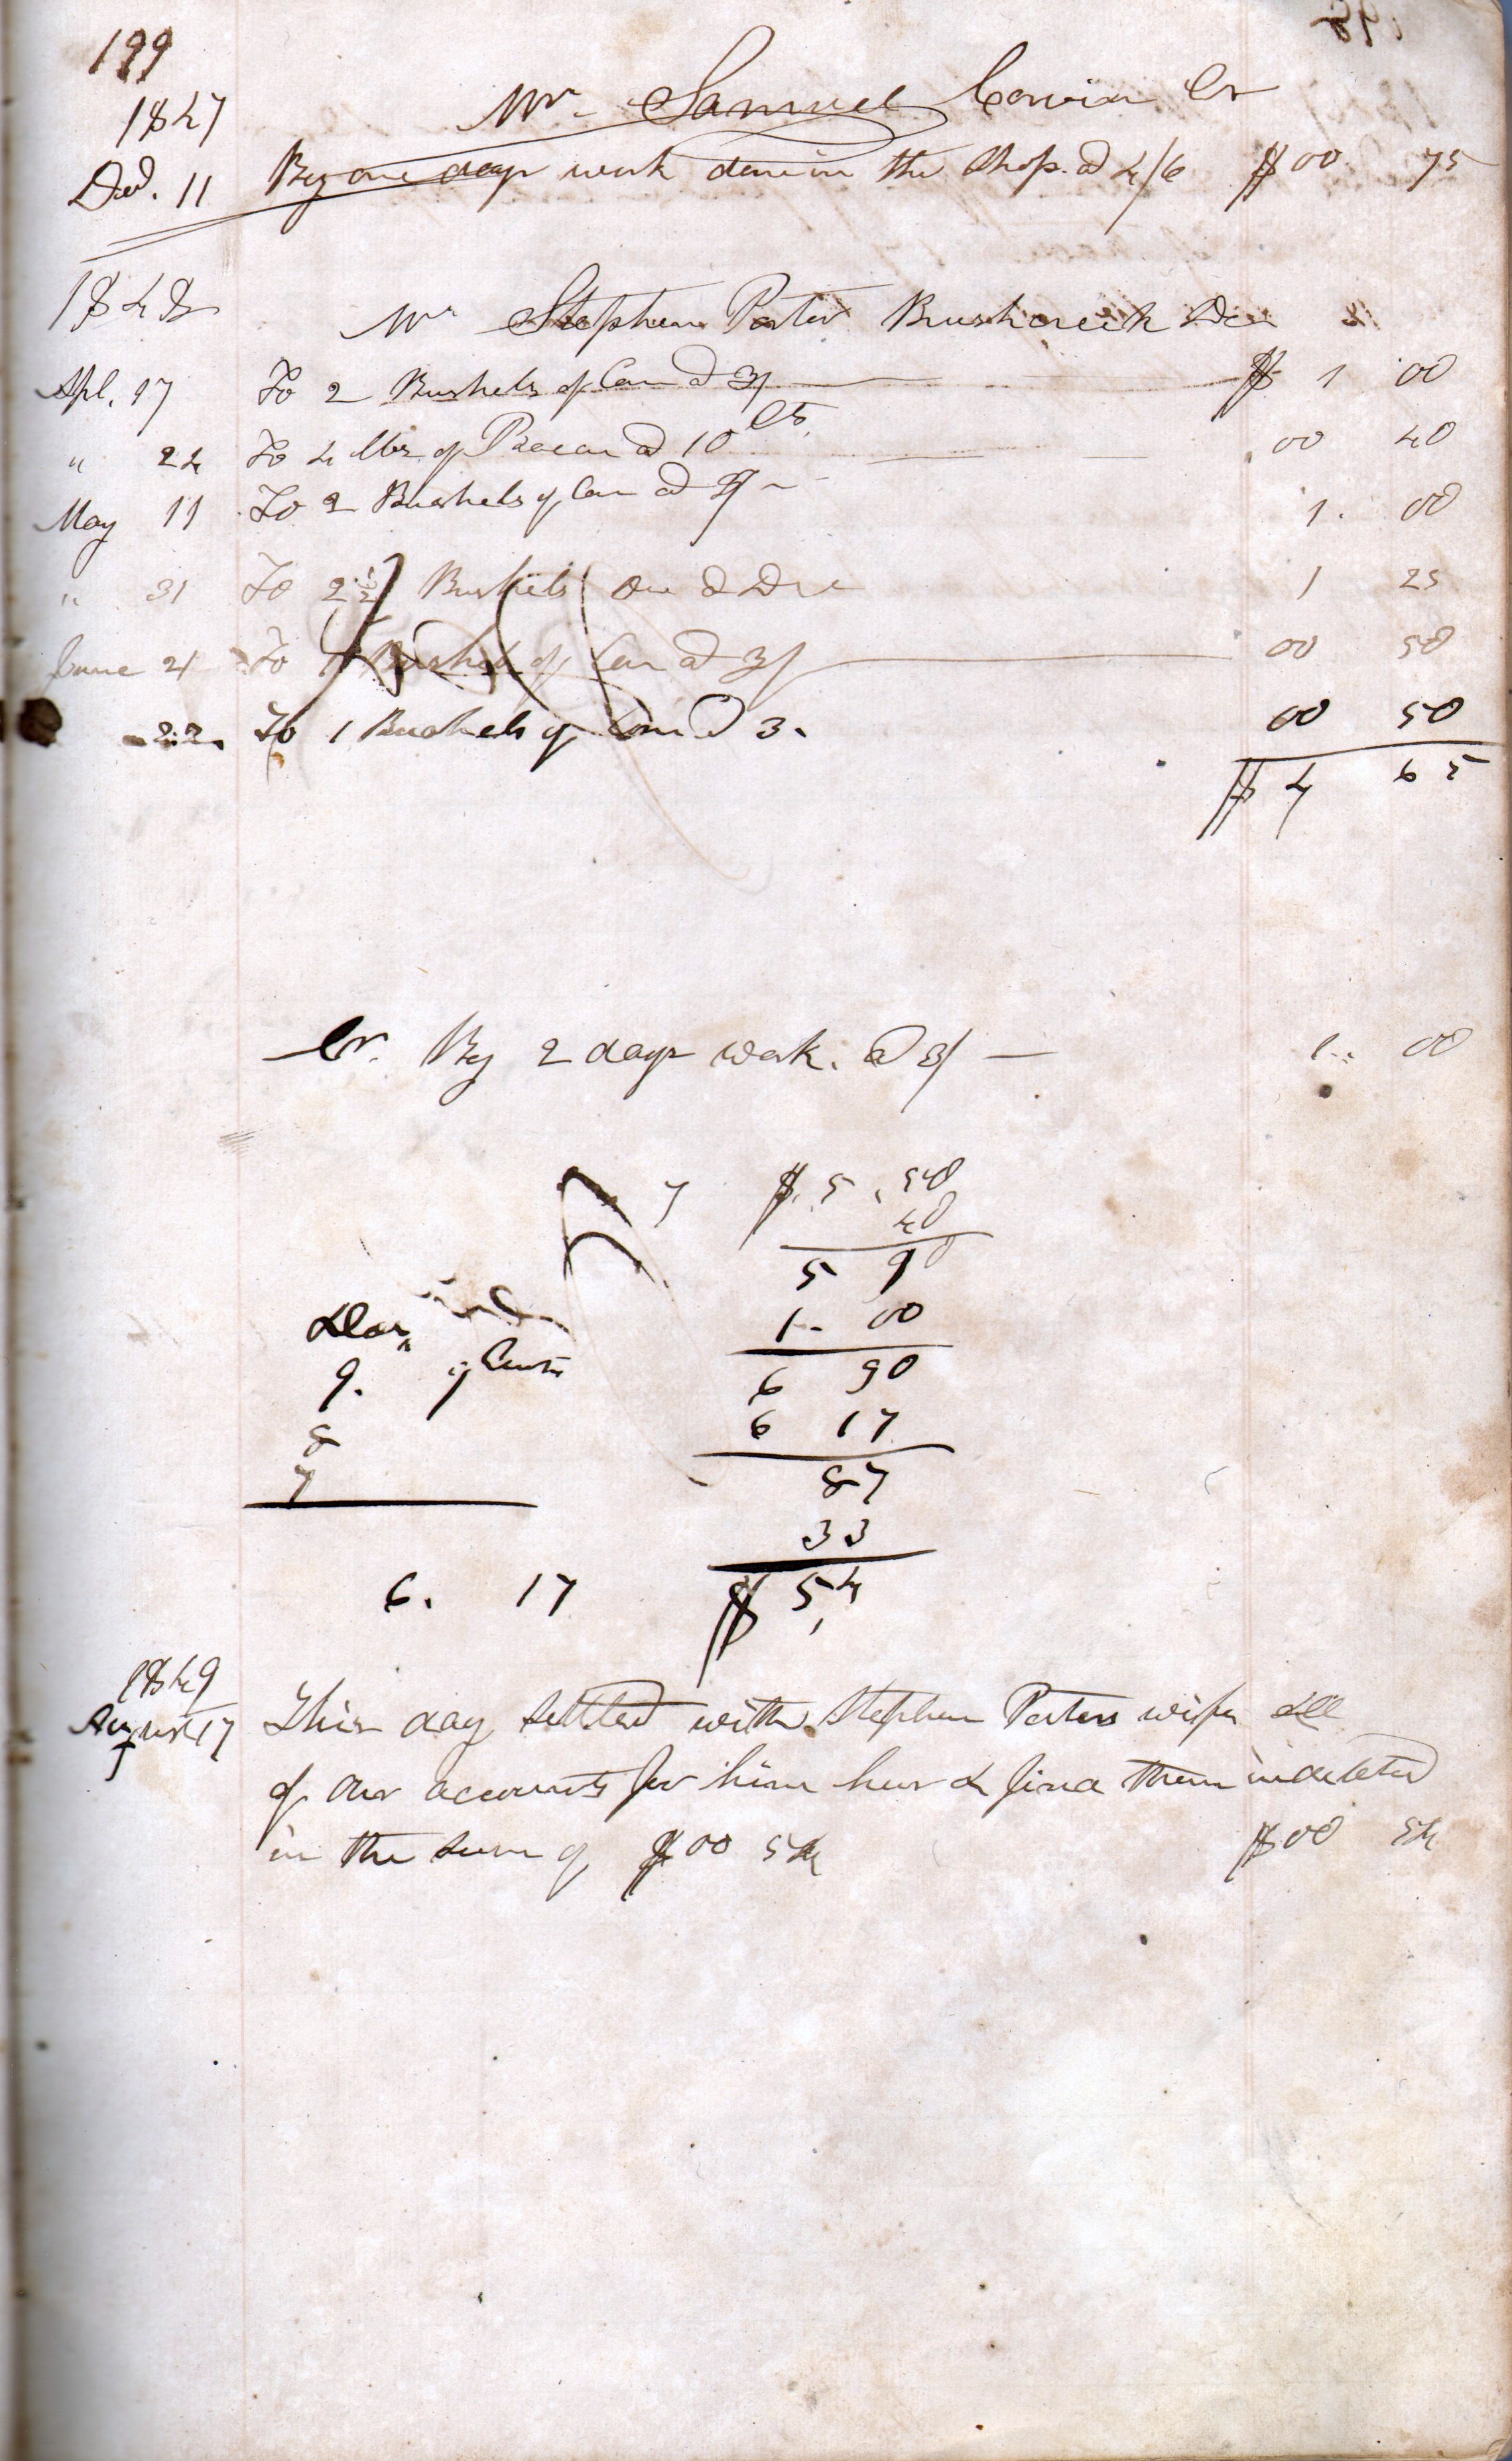 199
1847
Mr Samuel Corwin Cr
Decr. 11 By one days work done in the Shop. @ 4/6 $00 75
1848
Mr Stephen Porter Brushcreek Dr
Apl. 17 To 2 Bushels of Corn @ 3/ $ 1 00
" 24 To 4 lbs of Bacon @ 10 Cts. 00 40
May 11 To 2 Bushels of Corn @ 3/ 1. 00
" 31 To 2 1/2 Bushels 1 25
June 21 To 1 Bushel of Corn @ 3/ 00 50
22. To 1 Bushels of Corn @ 3. 00 50
$ 4 65
Cr. By 2 days work. @ 3/ 1. 00
7 $. 5. 50
40
5 90
1. 00
Cents
9.
6 90
6 17
8
7
87
33
6. 17 $ 54
1849
August 17 This day settled with Stephen Porters wife all
of our accounts for him her & find them indebted
in the sum of $00 54 $00 54